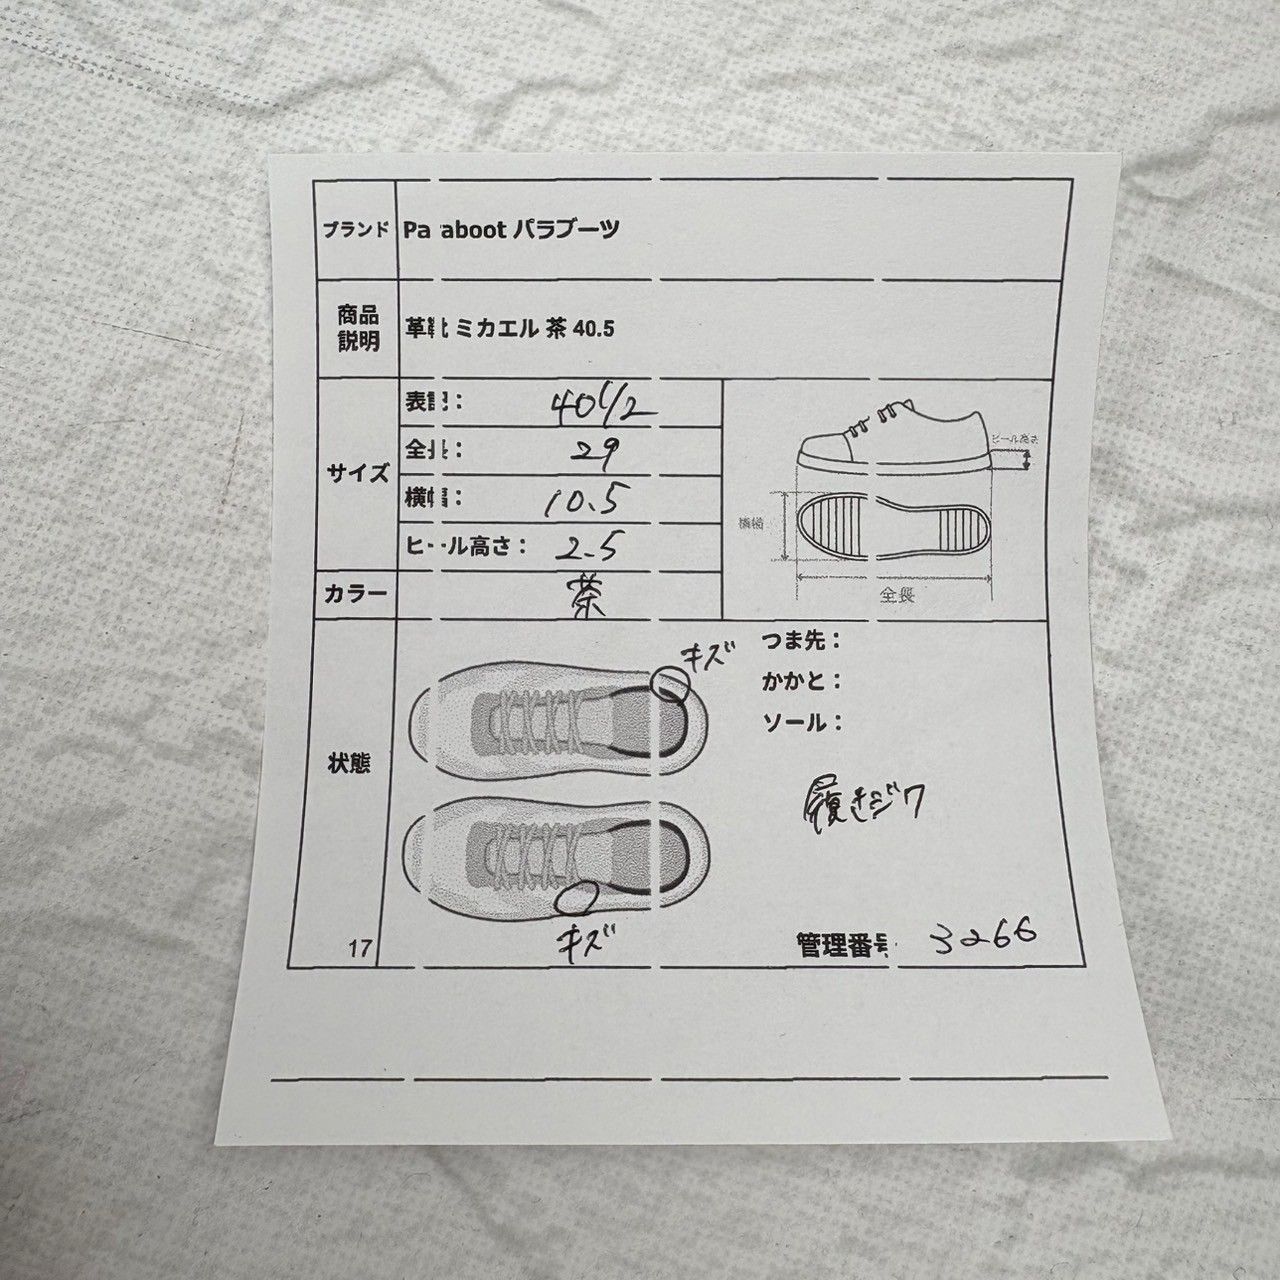 ブランド Paraboot パラブーツ
商品説明 革靴 ミカエル 茶 40.5
サイズ
表記： 40 1/2
全長： 29
横幅： 10.5
ヒール高さ： 2.5
ヒール高さ
横幅
全長
カラー 茶
状態
キズ
キズ
つま先：
かかと：
ソール：
履きジワ
17
管理番号 3266